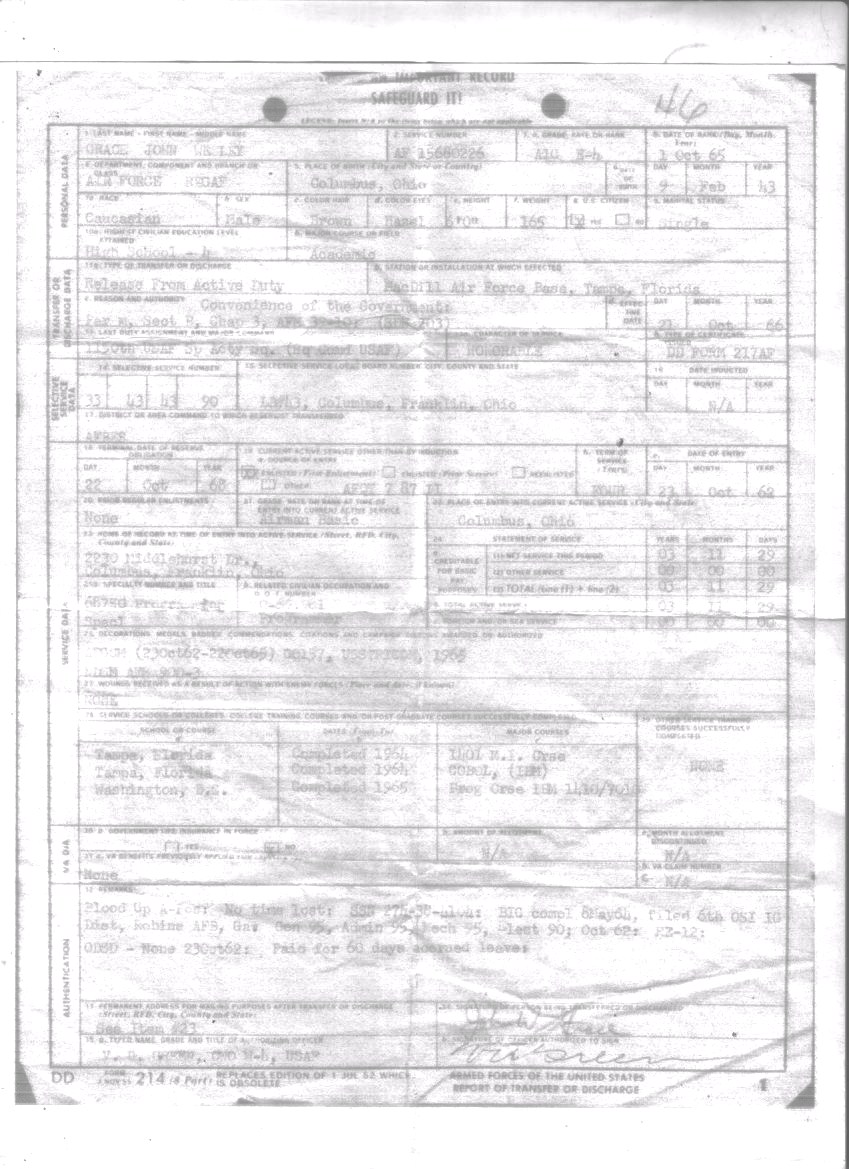 IMPORTANT RECORD
SAFEGUARD IT!
46
PERSONAL DATA
1. LAST NAME - FIRST NAME - MIDDLE NAME
GRACE JOHN WESLEY
2. SERVICE NUMBER
AF 15680226
3. a. GRADE, RATE OR RANK
A1C E-4
b. DATE OF RANK (Day, Month, Year)
1 Oct 65
4. DEPARTMENT, COMPONENT AND BRANCH OR CLASS
AIR FORCE REGAF
5. PLACE OF BIRTH (City and State or Country)
Columbus, Ohio
DATE OF BIRTH
DAY MONTH YEAR
9 Feb 43
7a. RACE
Caucasian
b. SEX
Male
c. COLOR HAIR
Brown
d. COLOR EYES
Hazel
e. HEIGHT
f. WEIGHT
165
8. U.S. CITIZEN
YES NO
9. MARITAL STATUS
Single
10a. HIGHEST CIVILIAN EDUCATION LEVEL ATTAINED
High School - 4
b. MAJOR COURSE OR FIELD
Academic
TRANSFER OR DISCHARGE DATA
11a. TYPE OF TRANSFER OR DISCHARGE
Release From Active Duty
b. STATION OR INSTALLATION AT WHICH EFFECTED
MacDill Air Force Base, Tampa, Florida
c. REASON AND AUTHORITY
Convenience of the Government:
Par m, Sect B, Chap 3,
EFFECTIVE DATE
DAY MONTH YEAR
21 Oct 66
12. LAST DUTY ASSIGNMENT AND MAJOR COMMAND
1150th USAF Sp Acty Sq. (Hq Comd USAF)
CHARACTER OF SERVICE
HONORABLE
b. TYPE OF CERTIFICATE ISSUED
DD FORM 217AF
SELECTIVE SERVICE DATA
14. SELECTIVE SERVICE NUMBER
33 43 43 90
15. SELECTIVE SERVICE LOCAL BOARD NUMBER, CITY, COUNTY AND STATE
LB#43, Columbus, Franklin, Ohio
16. DATE INDUCTED
DAY MONTH YEAR
N/A
17. DISTRICT OR AREA COMMAND TO WHICH RESERVIST TRANSFERRED
AFRES
SERVICE DATA
18. TERMINAL DATE OF RESERVE OBLIGATION
DAY MONTH YEAR
22 Oct 68
19. CURRENT ACTIVE SERVICE OTHER THAN BY INDUCTION
a. SOURCE OF ENTRY
ENLISTED (First Enlistment) ENLISTED (Prior Service) REENLISTED
OTHER
b. TERM OF SERVICE (Years)
FOUR
c. DATE OF ENTRY
DAY MONTH YEAR
23 Oct 62
20. PRIOR REGULAR ENLISTMENTS
None
21. GRADE, RATE OR RANK AT TIME OF ENTRY INTO CURRENT ACTIVE SERVICE
Airman Basic
22. PLACE OF ENTRY INTO CURRENT ACTIVE SERVICE (City and State)
Columbus, Ohio
23. HOME OF RECORD AT TIME OF ENTRY INTO ACTIVE SERVICE (Street, RFD, City, County and State)
2230 Middlehurst Dr.,
Columbus, Franklin, Ohio
24. STATEMENT OF SERVICE
YEARS MONTHS DAYS
CREDITABLE FOR BASIC PAY PURPOSES
(1) NET SERVICE THIS PERIOD 03 11 29
(2) OTHER SERVICE 00 00 00
(3) TOTAL (Line (1) + line (2)) 03 11 29
b. TOTAL ACTIVE SERVICE 03 11 29
FOREIGN AND/OR SEA SERVICE 00 00 00
SPECIALTY NUMBER AND TITLE
Programming
Specl
b. RELATED CIVILIAN OCCUPATION AND D.O.T. NUMBER
Programmer
DECORATIONS, MEDALS, BADGES, COMMENDATIONS, CITATIONS AND CAMPAIGN RIBBONS AWARDED OR AUTHORIZED
(23Oct62-22Oct65) USSTRICOM, 1965
AFR 900-3
27. WOUNDS RECEIVED AS A RESULT OF ACTION WITH ENEMY FORCES (Place and date, if known)
NONE
28. SERVICE SCHOOLS OR COLLEGES, COLLEGE TRAINING COURSES AND/OR POST-GRADUATE COURSES SUCCESSFULLY COMPLETED
SCHOOL OR COURSE DATES (From-To) MAJOR COURSES
Tampa, Florida Completed 1964 1401 M.I. Crse
Tampa, Florida Completed 1964 COBOL, (IBM)
Washington, D.C. Completed 1965 Prog Crse IBM 1410/7010
29. OTHER SERVICE TRAINING COURSES SUCCESSFULLY COMPLETED
NONE
VA DATA
30. a. GOVERNMENT LIFE INSURANCE IN FORCE
YES NO
b. AMOUNT OF ALLOTMENT
N/A
c. MONTH ALLOTMENT DISCONTINUED
N/A
31 a. VA BENEFITS PREVIOUSLY APPLIED FOR
None
b. VA CLAIM NUMBER
C- N/A
AUTHENTICATION
32. REMARKS
Blood Gp No time lost: BIC compl 8May64, filed 6th OSI IG
Dist, Robins AFB, Ga: Gen 95, Admin 95, Mech 95, Elect 90; Oct 62:
ODSD - None 23Oct62: Paid for 60 days accrued leave:
33. PERMANENT ADDRESS FOR MAILING PURPOSES AFTER TRANSFER OR DISCHARGE
(Street, RFD, City, County and State)
See Item #23
34. SIGNATURE OF PERSON BEING TRANSFERRED OR DISCHARGED
John W. Grace
35. a. TYPED NAME, GRADE AND TITLE OF AUTHORIZING OFFICER
CWO W-4, USAF
b. SIGNATURE OF OFFICER AUTHORIZED TO SIGN
DD FORM 214 (8 Part) REPLACES EDITION OF 1 JUL 52 WHICH IS OBSOLETE
ARMED FORCES OF THE UNITED STATES
REPORT OF TRANSFER OR DISCHARGE
1